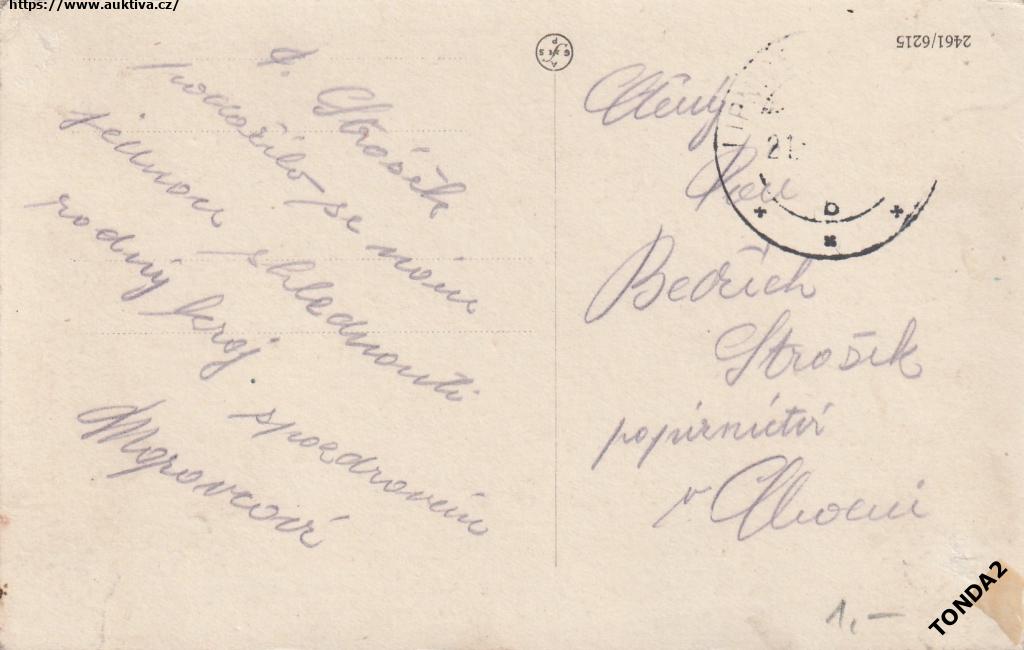 https://www.auktiva.cz/
2461/6215
P. Strošek
podařilo se nám
jednou shlednouti
rodný kraj.
spozdravem
Moravcová
Ctěný
Pan
Bedřich
Strošek
papírnictví
v Chocni
21.
b
1,-
TONDA2